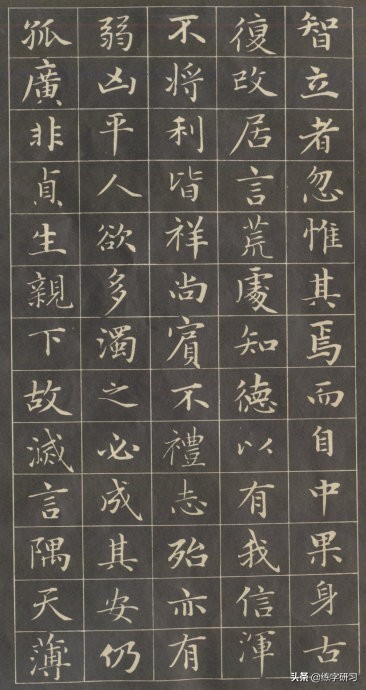 智立者忽惟其焉而自中果身古
復改居言荒處知德以有我信渾
不将利皆祥尚賓不禮志殆亦有
弱凶平人欲多濁之必成其安仍
孤廣非貞生親下故滅言隅天薄
头条@练字研习